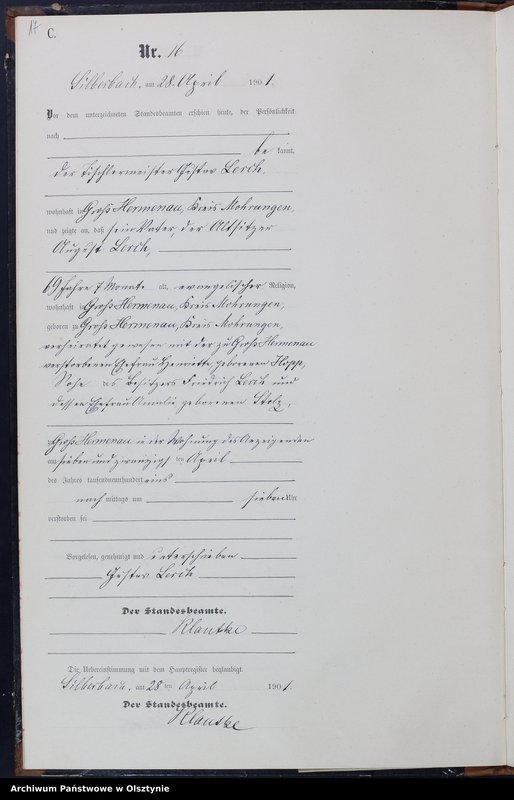 17
C.
Nr. 16
Silberbach, am 28. April 1901.
Vor dem unterzeichneten Standesbeamten erschien heute, der Persönlichkeit
nach
be kannt,
der Tischlermeister Gustav Lerch,
wohnhaft in Groß Hermenau, Kreis Mohrungen,
und zeigte an, daß sein Vater, der Altsitzer
August Lerch,
69 Jahre 7 Monate alt, evangelischer Religion,
wohnhaft in Groß Hermenau, Kreis Mohrungen,
geboren zu Groß Hermenau, Kreis Mohrungen,
verheiratet gewesen mit der zu Groß Hermenau
verstorbenen Ehefrau Henriette, geborenen Hopp,
Sohn des Besitzers Friedrich Lerch und
dessen Ehefrau Amalie geborenen Stolz,
zu Groß Hermenau in der Wohnung des Anzeigenden
am sieben und zwanzigsten April
des Jahres tausendneunhundert eins
nach mittags um sieben Uhr
verstorben sei
Vorgelesen, genehmigt und unterschrieben
Gustav Lerch
Der Standesbeamte.
Klautke
Die Uebereinstimmung mit dem Hauptregister beglaubigt.
Silberbach, am 28 ten April 1901.
Der Standesbeamte.
Klautke
Archiwum Państwowe w Olsztynie